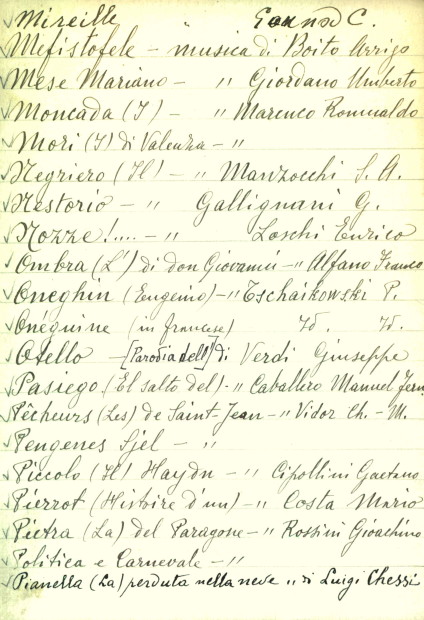 Mireille " Gounod C.
Mefistofele - musica di Boito Arrigo
Mese Mariano - " Giordano Umberto
Moncada (I) - " Marenco Romualdo
Mori (I) di Valenza - "
Negriero (Il) - " Manzocchi S. A.
Nestorio - " Gallignani G.
Nozze!.... - " Loschi Enrico
Ombra (L') di don Giovanni - " Alfano Franco
Oneghin (Eugenio) - " Tschaikowski P.
Onéguine (in francese) Id. Id.
Otello - [Parodia dell'] di Verdi Giuseppe
Pasiego (El salto del) - " Caballero Manuel Fern
Pêcheurs (Les) de Saint-Jean - " Vidor Ch. - M.
Pengenes Sjel - "
Piccolo (Il) Haydn - " Cipollini Gaetano
Pierrot (Histoire d'un) - " Costa Mario
Pietra (La) del Paragone - " Rossini Gioachino
Politica e Carnevale - "
Pianella (La) perduta nella neve " di Luigi Chessi